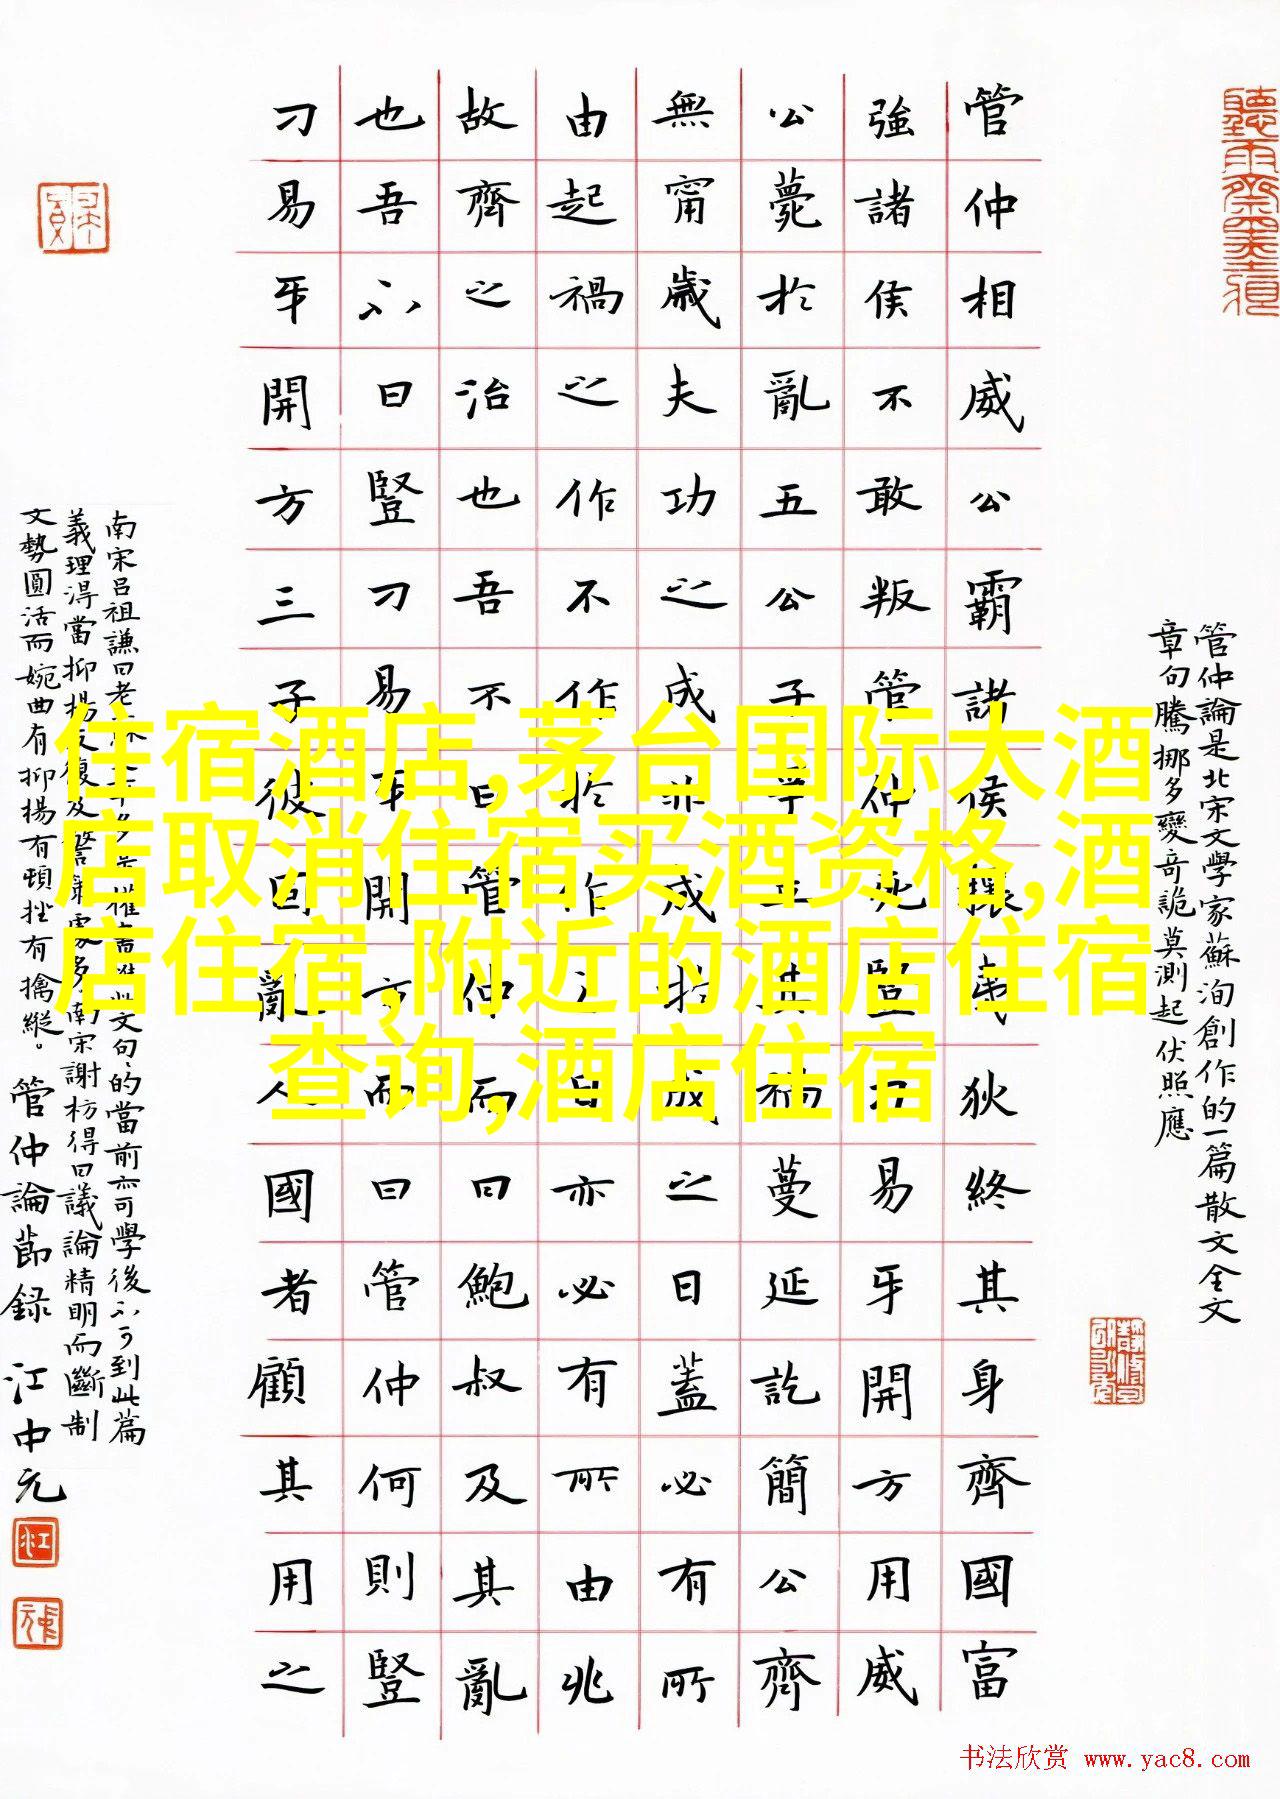 聽雨齋墨
管仲論是北宋文學家蘇洵創作的一篇散文全文
章句騰挪多變奇詭莫測起伏照應
管仲相威公霸諸侯攘夷狄終其身齊國富
強諸侯不敢叛管仲死豎刁易牙開方用威
公薨於亂五公子爭立其禍蔓延訖簡公齊
無甯歲夫功之成非成於成之日蓋必有所
由起禍之作不作於作之日亦必有所由兆
故齊之治也吾不曰管仲而曰鮑叔及其亂
也吾不曰豎刁易牙開方而曰管仲何則豎
刁易牙開方三子彼固亂人國者顧其用之
南宋呂祖謙曰老蘇文句的當前亦可學後不可到此篇
義理淂當抑揚反復及警策處多南宋謝枋得曰議論精明而斷制
文勢圓活而婉曲有抑揚有頓挫有擒縱。管仲論節録 江中元
江
住宿酒店,茅台国际大酒
店取消住宿买酒资格,酒
店住宿,附近的酒店住宿
查询,酒店住宿
书法欣赏 www.yac8.com